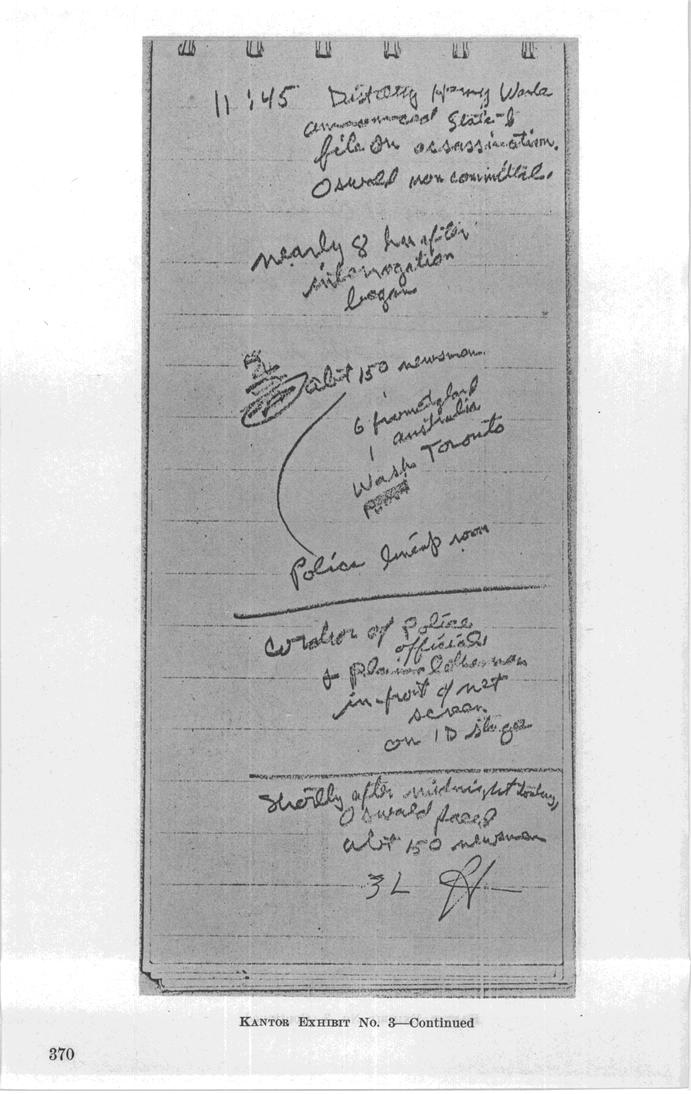 11:45 Dist Atty Henry Wade
announced State-to
file on assassination.
Oswald noncommittal.
nearly 8 hrs after
interrogation
began
abt 150 newsmen
6 from England
1 Australia
Wash Toronto
Police lineup room
cordon of police
officials
+ plainclothesman
in front of net
screen
on ID stage
Shortly after midnight today,
Oswald faced
abt 150 newsmen
3 L
KANTOR EXHIBIT No. 3—Continued
370